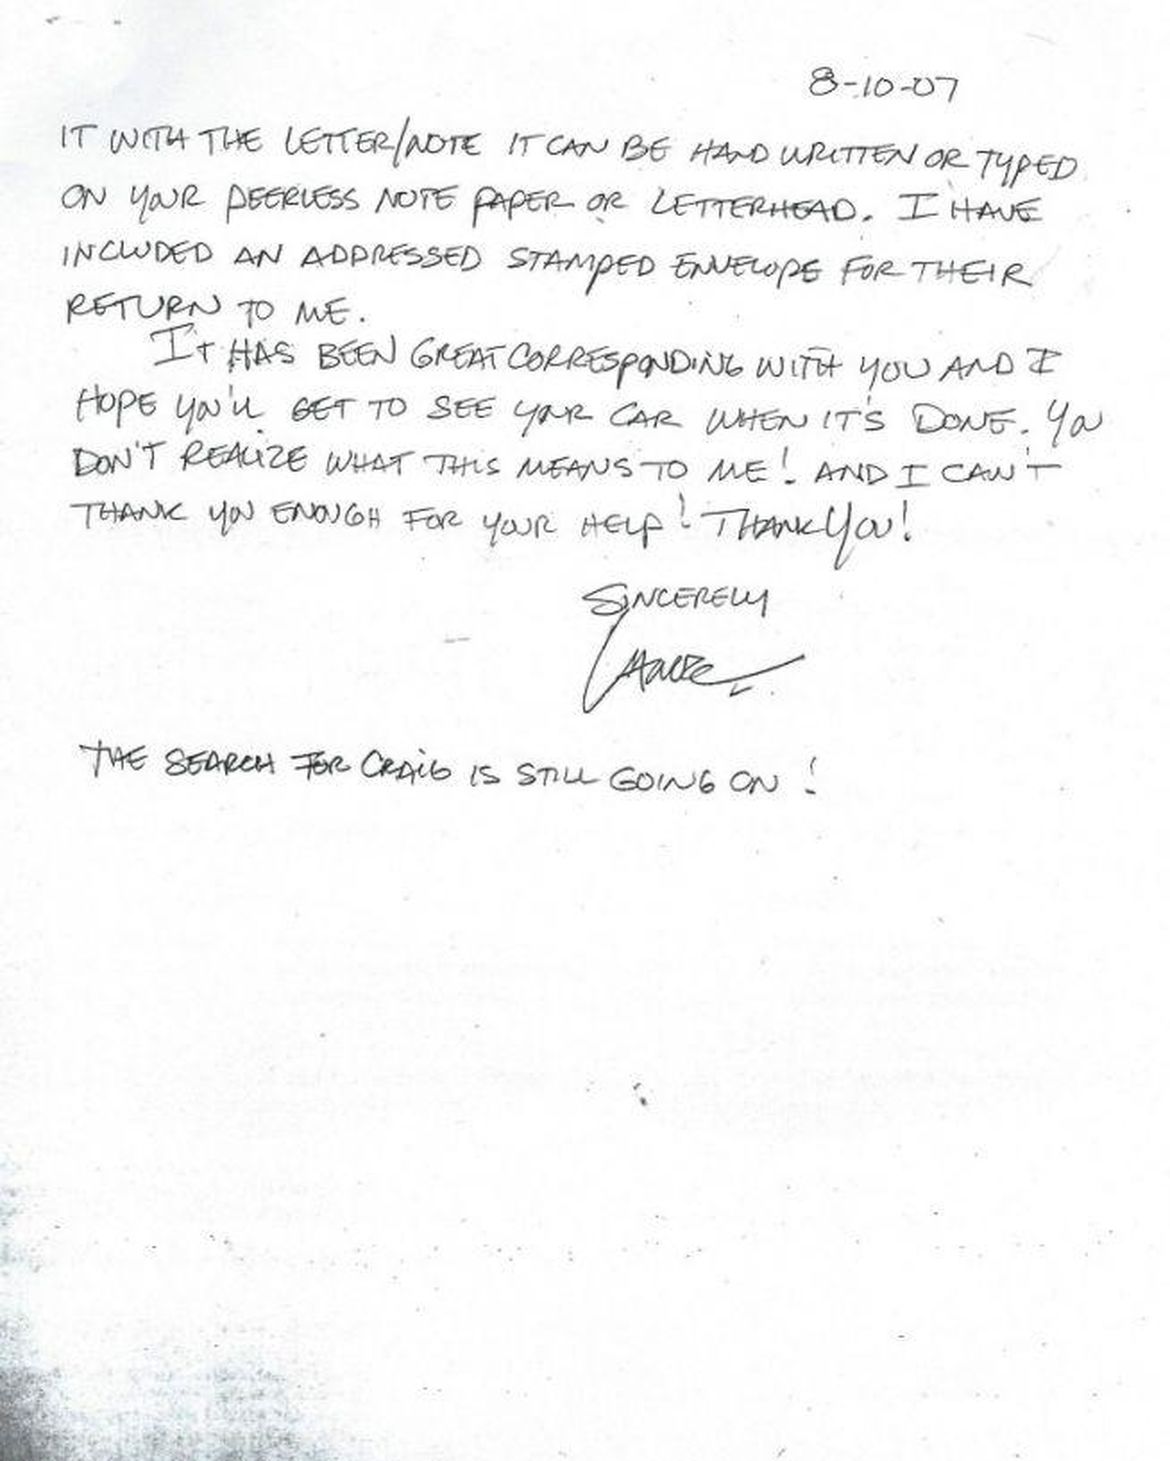 8-10-07
IT WITH THE LETTER/NOTE IT CAN BE HAND WRITTEN OR TYPED
ON YOUR PEERLESS NOTE PAPER OR LETTERHEAD. I HAVE
INCLUDED AN ADDRESSED STAMPED ENVELOPE FOR THEIR
RETURN TO ME.
IT HAS BEEN GREAT CORRESPONDING WITH YOU AND I
HOPE YOU'LL GET TO SEE YOUR CAR WHEN IT'S DONE. YOU
DON'T REALIZE WHAT THIS MEANS TO ME! AND I CAN'T
THANK YOU ENOUGH FOR YOUR HELP! THANK YOU!
SINCERELY
THE SEARCH FOR CRAIG IS STILL GOING ON!